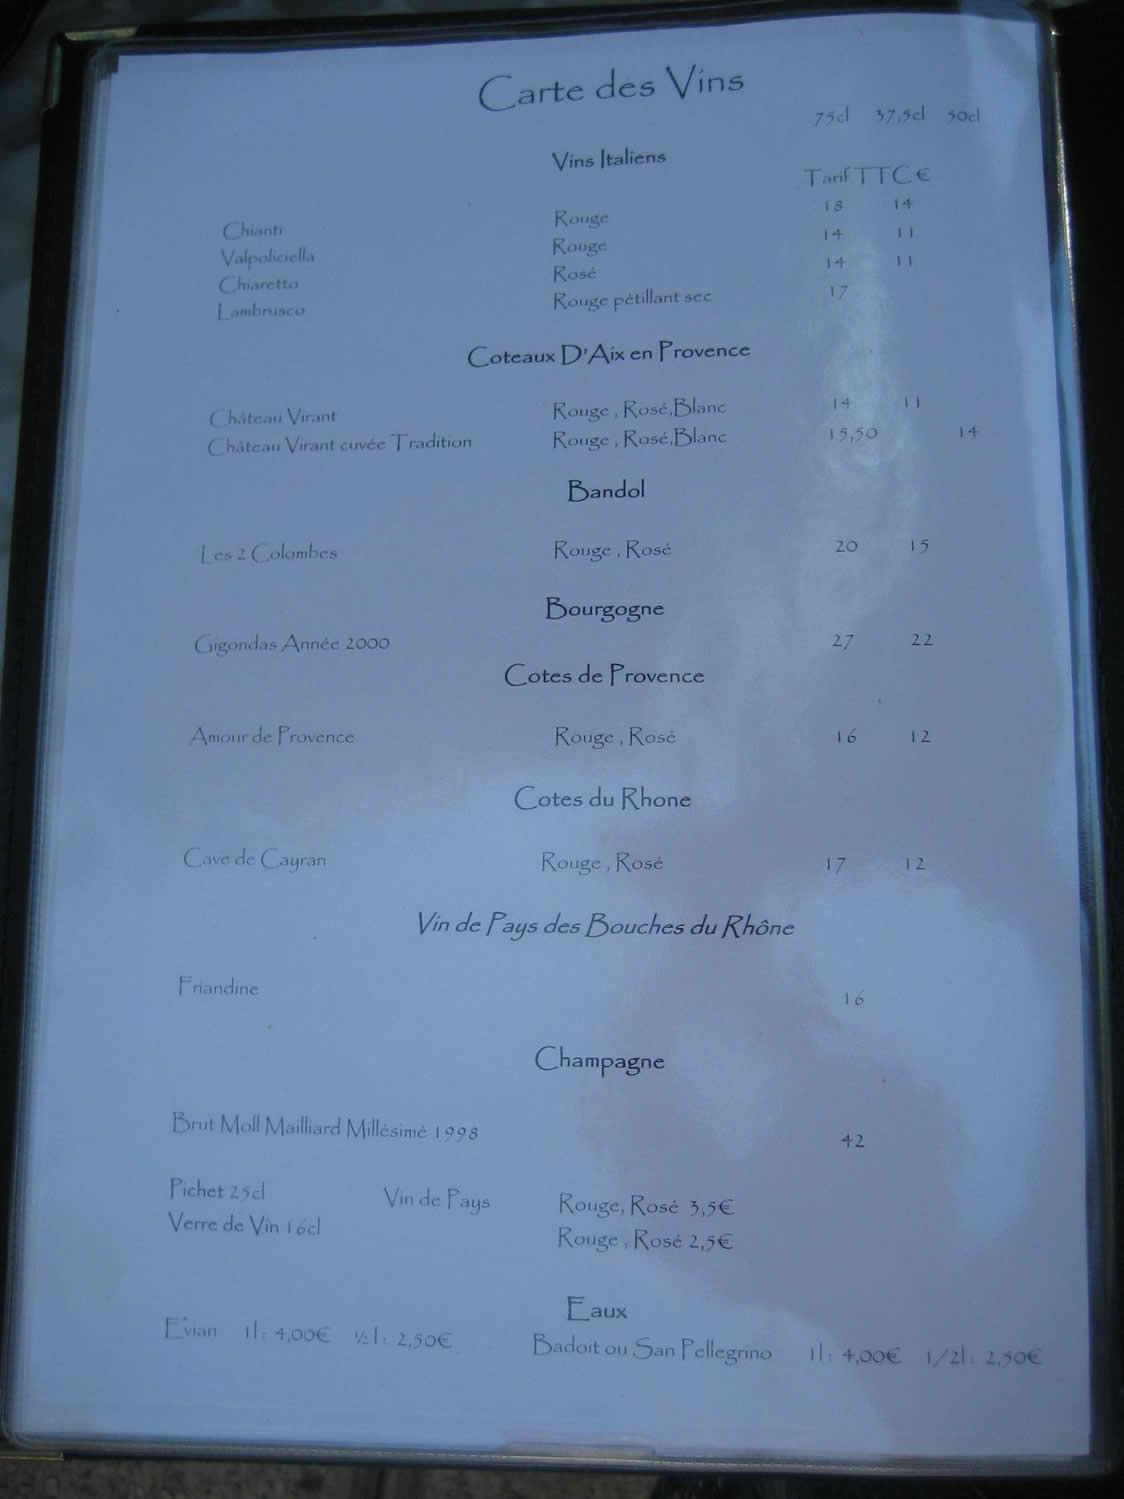 Carte des Vins
75cl 37,5cl 50cl
Vins Italiens
Tarif TTC €
Chianti Rouge 18 14
Valpoliciella Rouge 14 11
Chiaretto Rosé 14 11
Lambrusco Rouge pétillant sec 17
Coteaux D'Aix en Provence
Château Virant Rouge , Rosé,Blanc 14 11
Château Virant cuvée Tradition Rouge , Rosé,Blanc 15,50 14
Bandol
Les 2 Colombes Rouge , Rosé 20 15
Bourgogne
Gigondas Année 2000 27 22
Cotes de Provence
Amour de Provence Rouge , Rosé 16 12
Cotes du Rhone
Cave de Cayran Rouge , Rosé 17 12
Vin de Pays des Bouches du Rhône
Friandine 16
Champagne
Brut Moll Mailliard Millésimé 1998 42
Pichet 25cl Vin de Pays Rouge, Rosé 3,5€
Verre de Vin 16cl Rouge , Rosé 2,5€
Eaux
Evian 1l : 4,00€ ½ l : 2,50€ Badoit ou San Pellegrino 1l : 4,00€ 1/2l : 2,50€